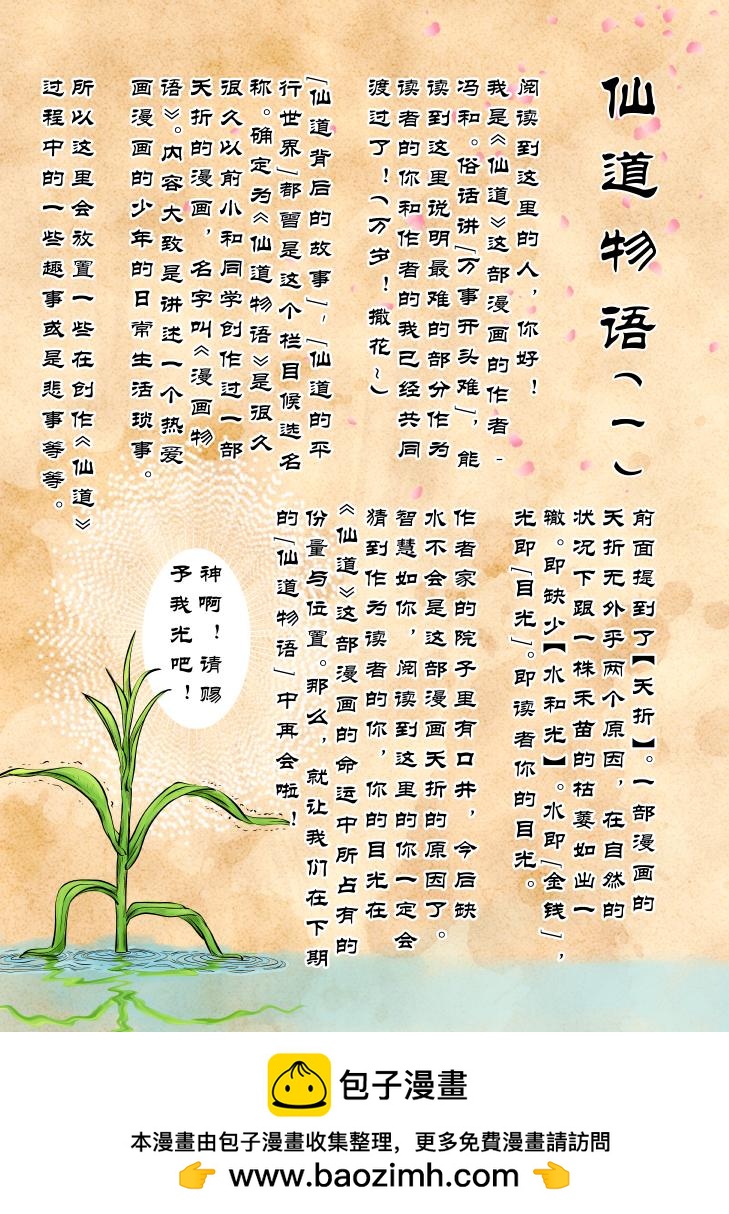 仙道物语（一）
阅读到这里的人，你好！
我是《仙道》这部漫画的作者-
冯和。俗话讲「万事开头难」，能
读到这里说明最难的部分作为
读者的你和作者的我已经共同
渡过了！（万岁！撒花~）
「仙道背后的故事」、「仙道的平
行世界」都曾是这个栏目候选名
称。确定为《仙道物语》是很久
很久以前小和同学创作过一部
夭折的漫画，名字叫《漫画物
语》。内容大致是讲述一个热爱
画漫画的少年的日常生活琐事。
所以这里会放置一些在创作《仙道》
过程中的一些趣事或是悲事等等。
前面提到了【夭折】。一部漫画的
夭折无外乎两个原因，在自然的
状况下跟一株禾苗的枯萎如出一
辙。即缺少【水和光】。水即「金钱」，
光即「目光」。即读者你的目光。
作者家的院子里有口井，今后缺
水不会是这部漫画夭折的原因了。
智慧如你，阅读到这里的你一定会
猜到作为读者的你，你的目光在
《仙道》这部漫画的命运中所占有的
份量与位置。那么，就让我们在下期
的「仙道物语」中再会啦！
神啊！请赐
予我光吧！
包子漫畫
本漫畫由包子漫畫收集整理，更多免費漫畫請訪問
👉 www.baozimh.com 👈